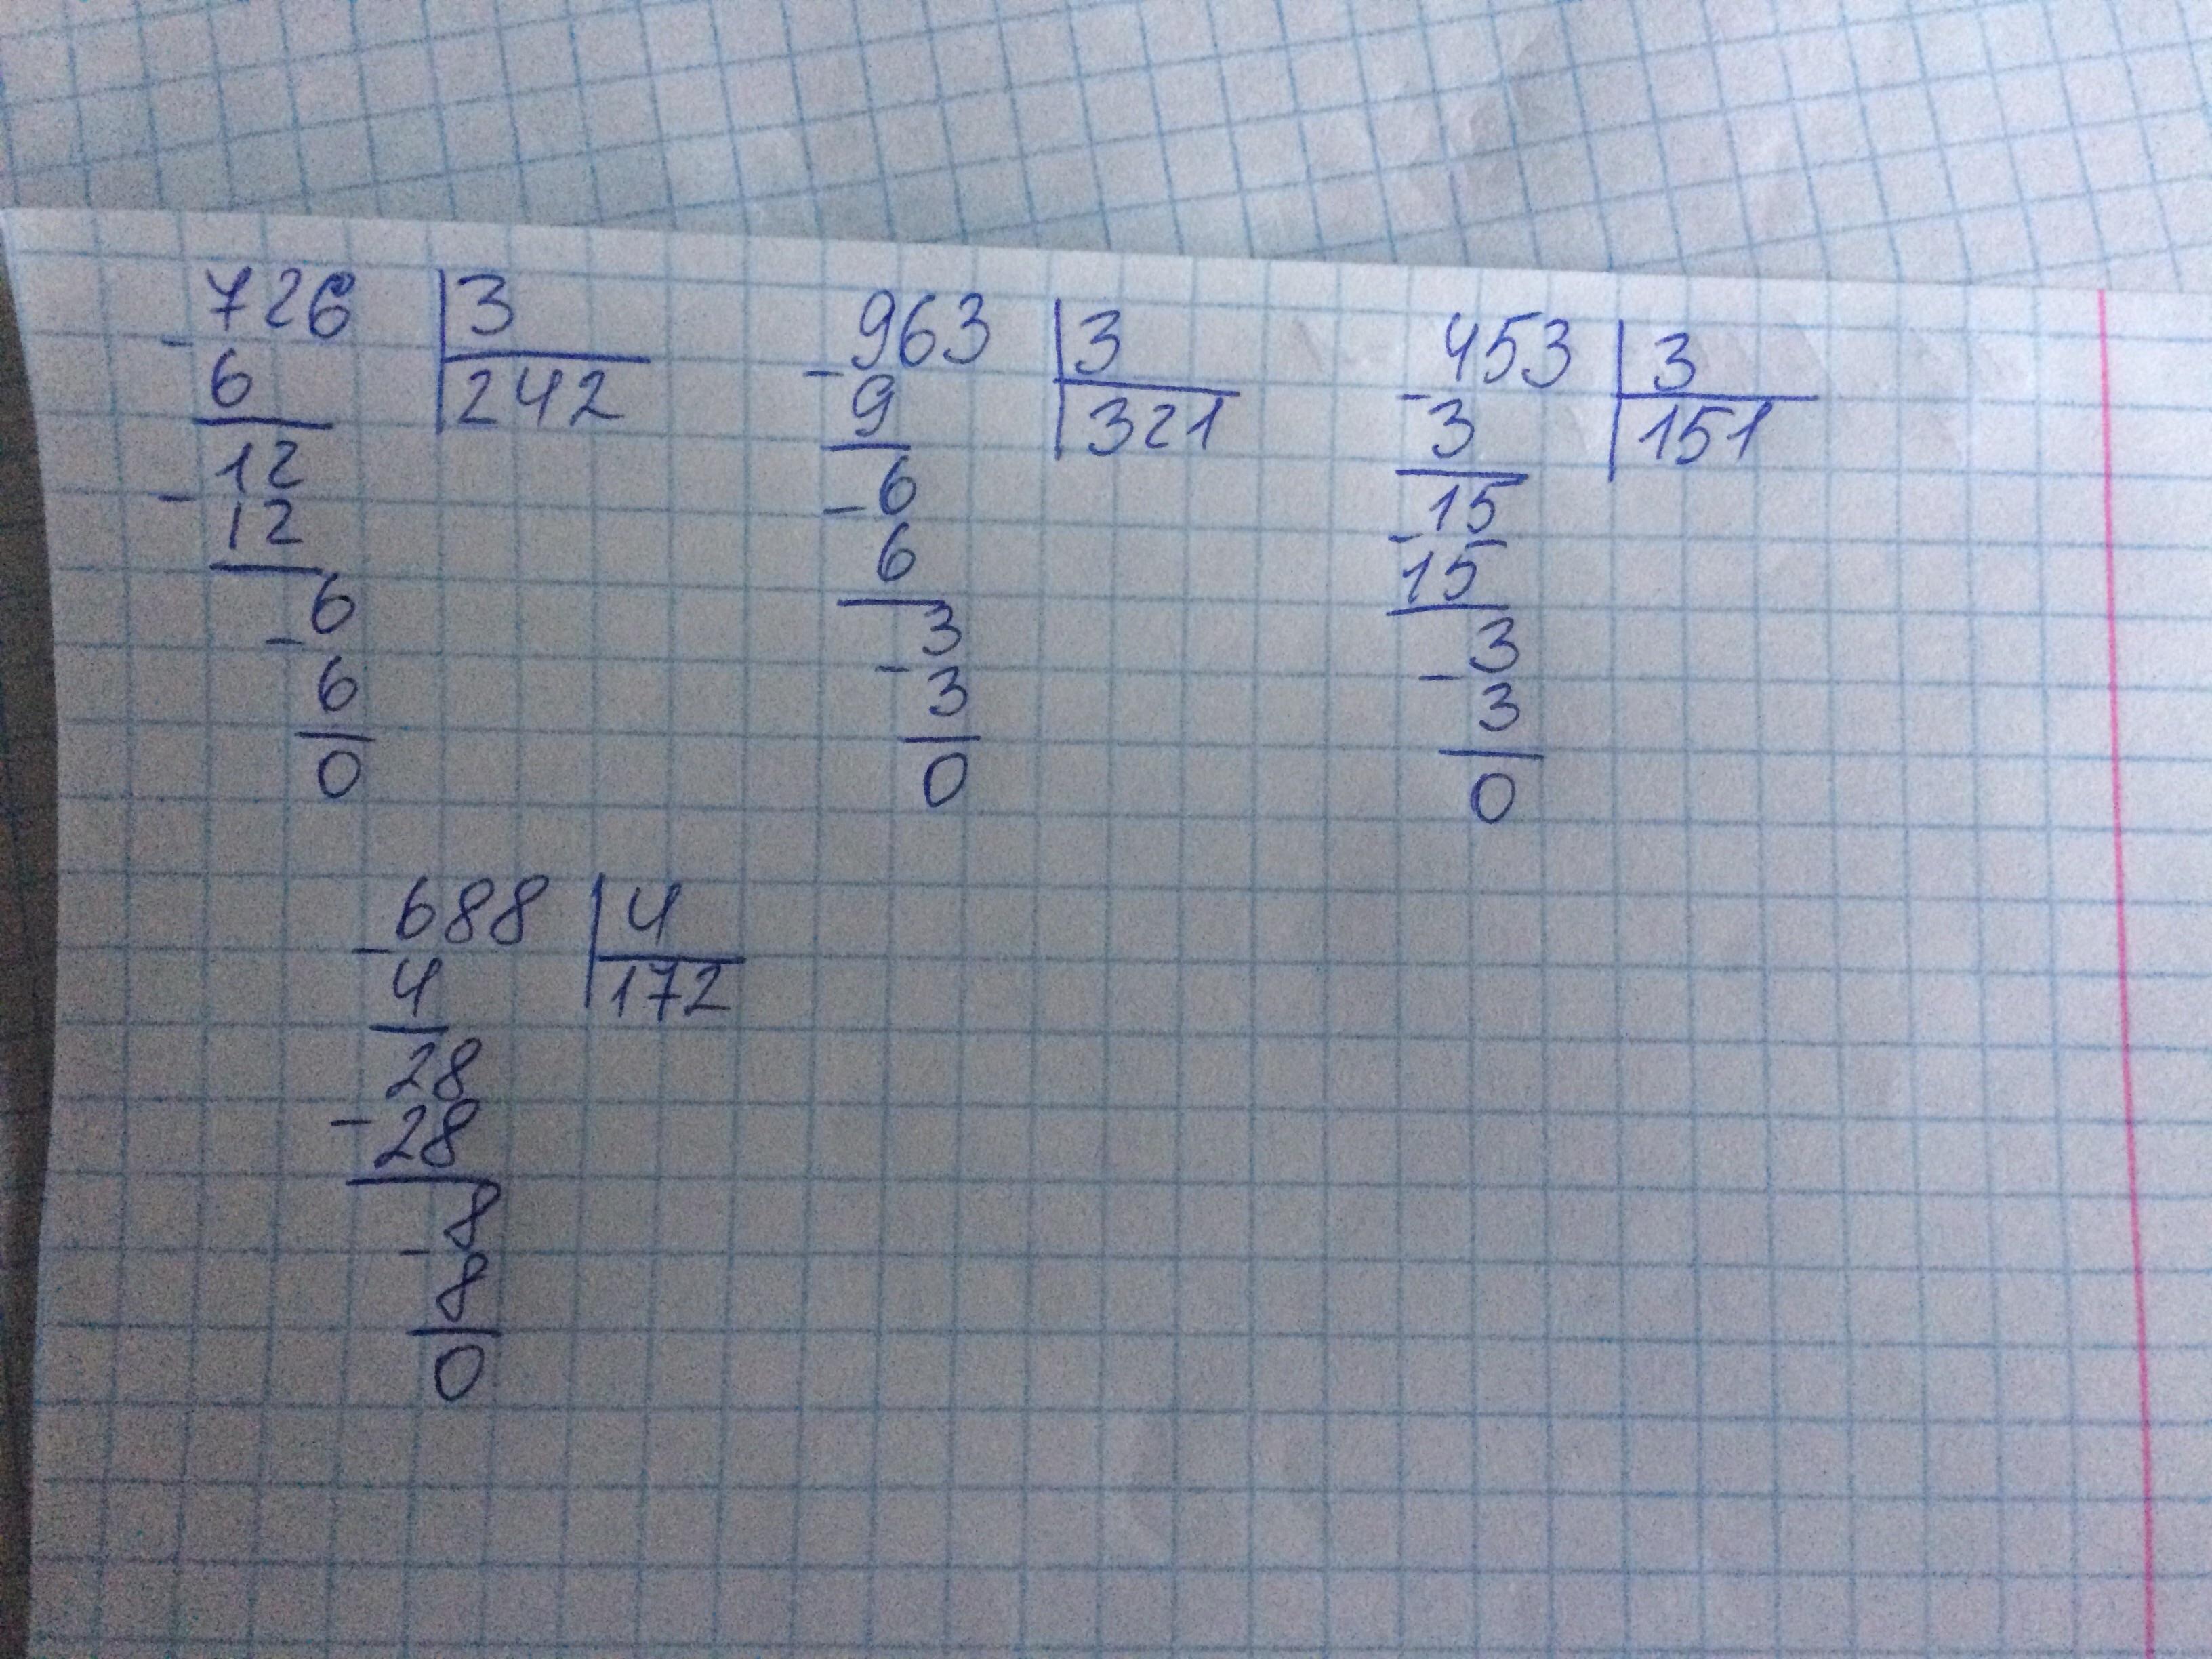 726 | 3
- 6 | 242
12
- 12
6
- 6
0
963 | 3
- 9 | 321
6
- 6
3
- 3
0
453 | 3
- 3 | 151
15
- 15
3
- 3
0
688 | 4
- 4 | 172
28
- 28
8
- 8
0